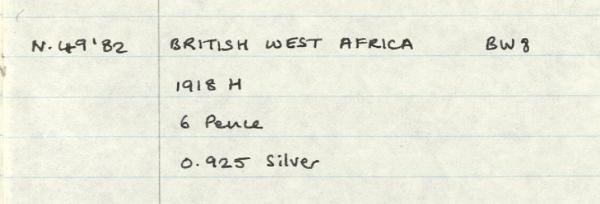 N.49'82 BRITISH WEST AFRICA BW8
1918 H
6 Pence
0.925 Silver